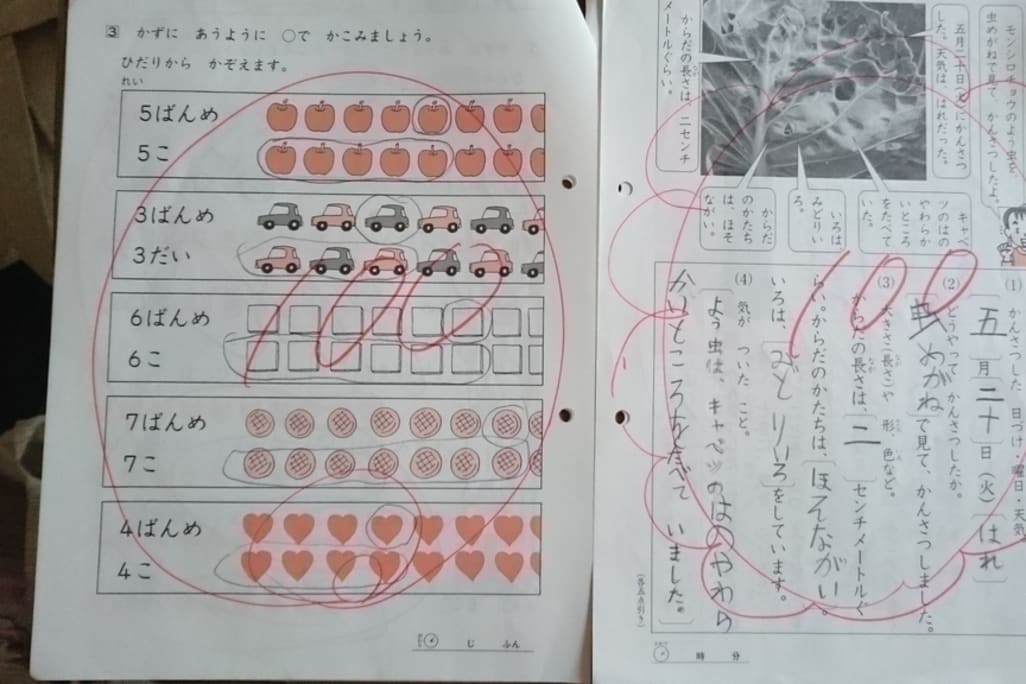 3 かずに あうように ○で かこみましょう。
ひだりから かぞえます。
れい
5ばんめ
5こ
3ばんめ
3だい
6ばんめ
6こ
7ばんめ
7こ
4ばんめ
4こ
100
じ ふん
モンシロチョウのよう虫を
虫めがねで見て、かんさつしたよ。
五月二十日(火)にかんさつ
した。天気は、はれだった。
からだの長さは、二センチ
メートルぐらい。
キャベ
ツのはの
やわらか
いところ
をたべて
いた。
いろは
みどりい
ろ。
からだ
のかたち
は、ほそ
ながい。
(1) かんさつした 日づけ・曜日・天気
五月二十日(火)はれ
(2) どうやって かんさつしたか。
虫めがねで見て、かんさつしました。
(3) 大きさ(長さ)や 形、色など。
からだの長さは、二センチメートルぐ
らい。からだのかたちは、ほそながい。
いろは、みどりいろをしています。
(4) 気が ついた こと。
よう虫は、キャベツのはのやわら
かいところをたべて いました。
100
(各五点引き)
時 分